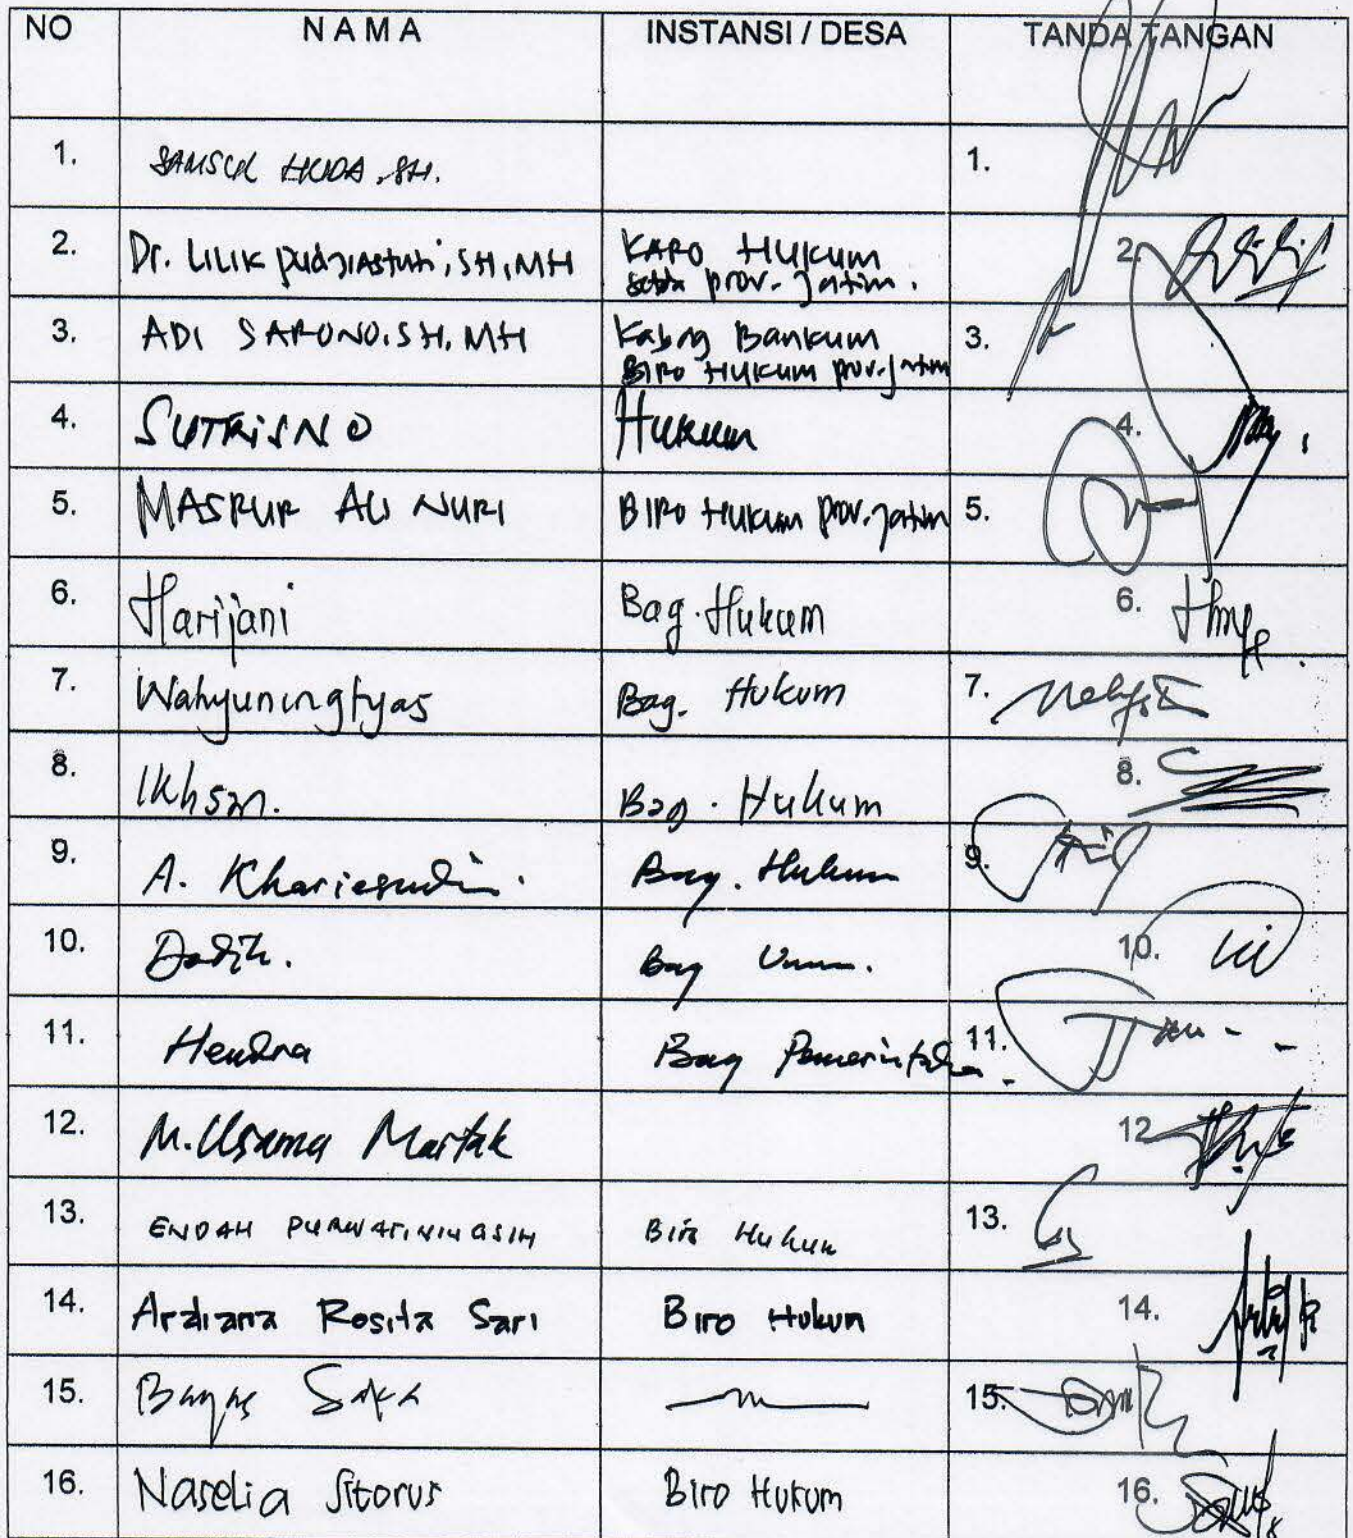 NO NAMA INSTANSI / DESA TANDA TANGAN
1. SAMSUL HUDA, SH. 1.
2. Dr. LILIK pudjiAstuti, SH, MH KARO HUKUM 2.
setda prov. Jatim.
3. ADI SARONO. SH, MH Kabag Bankum 3.
BIRO HUKUM prov. Jatim
4. SUTRISNO Hukum 4.
5. MASRUR ALI NURI BIRO HUKUM prov. Jatim 5.
6. Harijani Bag. Hukum 6.
7. Wahyuningtyas Bag. Hukum 7.
8. Ikhsan. Bag. Hukum 8.
9. A. Bag. Hukum 9.
10. Bag Umum. 10.
11. Hendra Bag Pemerintahan. 11.
12. M. Usama Martak 12
13. ENDAH PURWATININGSIH Biro Hukum 13.
14. Ardiana Rosita Sari Biro Hukum 14.
15. Bagas Saka 15.
16. Naselia Sitorus Biro Hukum 16.